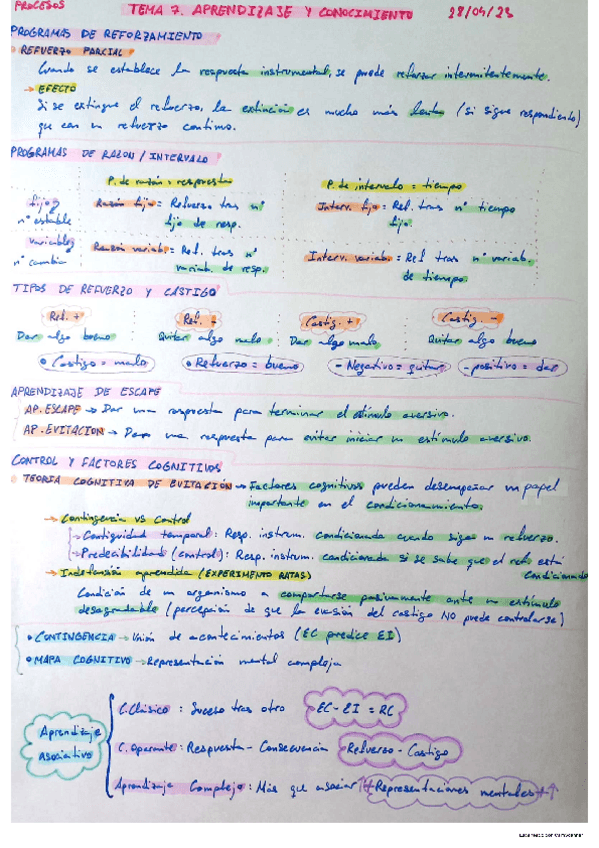 PROCESOS
TEMA 7. APRENDIZAJE Y CONOCIMIENTO 28/04/23
PROGRAMAS DE REFORZAMIENTO
• REFUERZO PARCIAL
Cuando se establece la respuesta instrumental, se puede reforzar intermitentemente.
→ EFECTO
Si se extingue el refuerzo, la extinción es mucho más lenta (si sigue respondiendo)
que con un refuerzo continuo.
PROGRAMAS DE RAZON / INTERVALO
P. de razón = respuesta P. de intervalo = tiempo
fijos Razón fija = Refuerzo tras nº Interv. fijo = Ref. tras nº tiempo
nº estable fijo de resp. fijo.
variables Razón variab. = Ref. tras nº Interv. variab. = Ref tras nº variab.
nº cambia variab. de resp. de tiempo.
TIPOS DE REFUERZO Y CASTIGO
Ref. + Ref. - Castig. + Castig. -
Dar algo bueno Quitar algo malo Dar algo malo Quitar algo bueno
• Castigo = malo • Refuerzo = bueno - Negativo = quitar - positivo = dar
APRENDIZAJE DE ESCAPE
AP. ESCAPE → Dar una respuesta para terminar el estímulo aversivo.
AP. EVITACION → Dar una respuesta para evitar iniciar un estímulo aversivo.
CONTROL Y FACTORES COGNITIVOS
• TEORIA COGNITIVA DE EVITACIÓN → Factores cognitivos pueden desempeñar un papel
importante en el condicionamiento.
→ Contingencia vs Control
→ Contiguidad temporal: Resp. instrum. condicionada cuando sigue un refuerzo.
→ Predecibilidad (control): Resp. instrum. condicionada si se sabe que el ref. está
condicionado
→ Indefensión aprendida (EXPERIMENTO RATAS)
Condición de un organismo a comportarse pasivamente ante un estímulo
desagradable (percepción de que la evasión del castigo NO puede controlarse)
• CONTINGENCIA → Unión de acontecimientos (EC predice EI)
• MAPA COGNITIVO → Representación mental compleja
Aprendizaje
asociativo
C. Clásico: Suceso tras otro EC - EI = RC
C. Operante: Respuesta - Consecuencia Refuerzo - Castigo
Aprendizaje Complejo: Más que asociar ↑↑ Representaciones mentales ↑↑